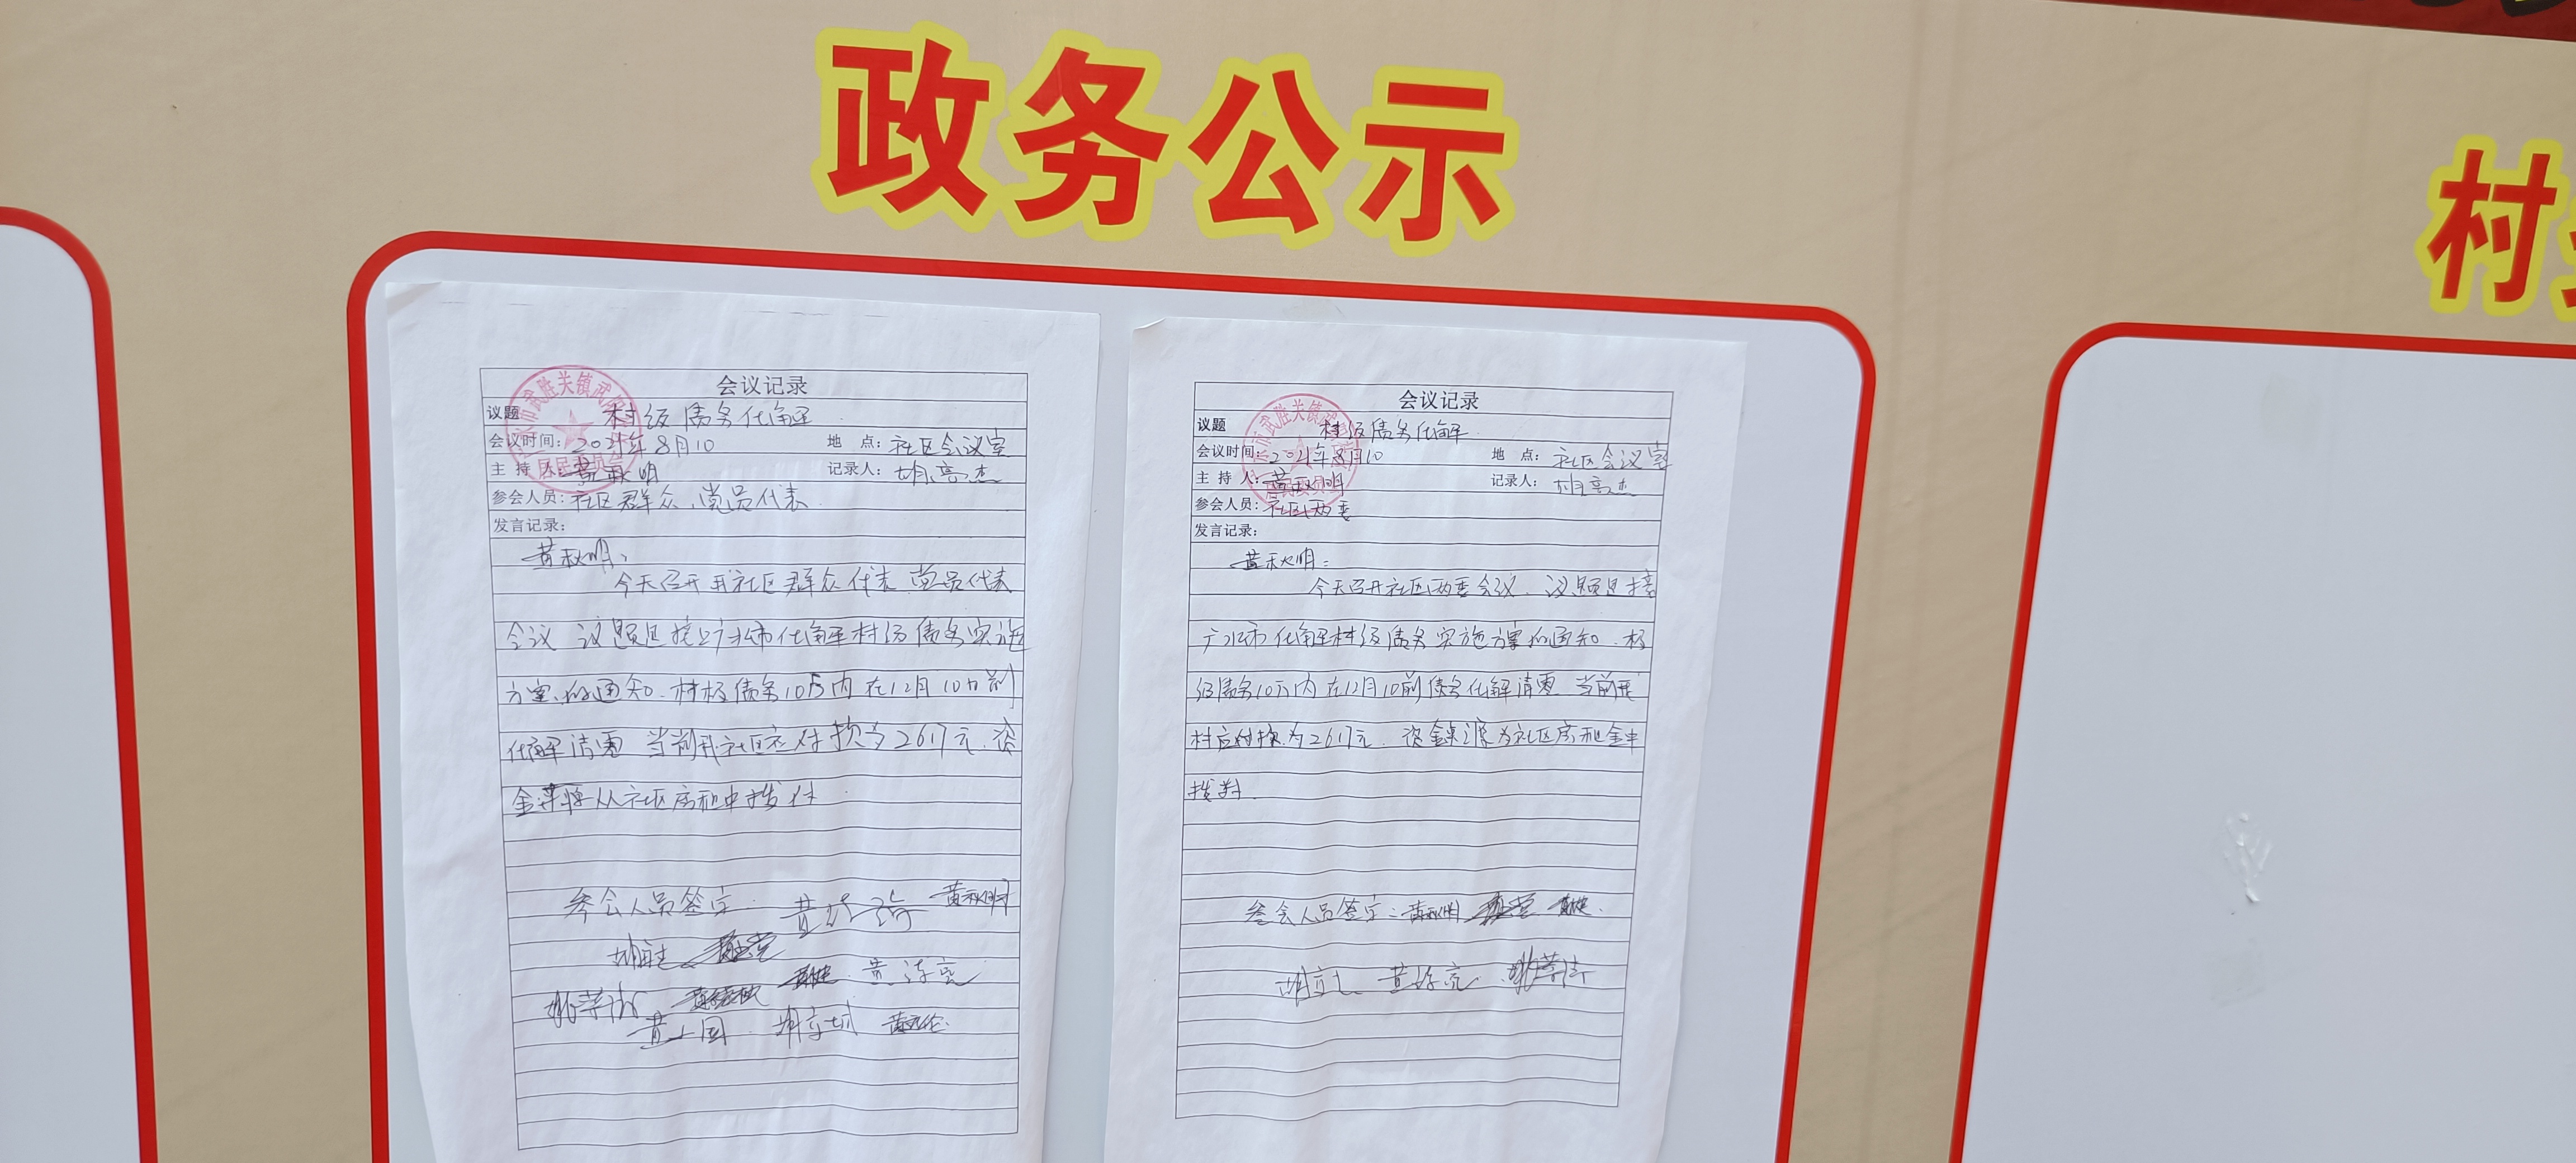 政务公示
村
会议记录
议题 村级债务化解
会议时间：2021年8月10 地 点：社区会议室
主 持 人：黄秋明 记录人：胡亮杰
参会人员：社区群众、党员代表
发言记录：
黄秋明：
今天召开我社区群众代表 党员代表
会议 议题是接上广水市化解村级债务实施
方案的通知．村极债务10万内 在12月10日前
化解清零 当前我社区应付款为2617元．资
金将从社区房租中拨付
参会人员签字： 黄秋明
会议记录
议题 村级债务化解
会议时间：2021年8月10 地 点：社区会议室
主 持 人：黄秋明 记录人：胡亮杰
参会人员：社区两委
发言记录：
黄秋明：
今天召开社区两委会议．议题是接
广水市化解村级债务实施方案的通知．村
级债务10万内 在12月10前债务化解清零 当前我
村应付款为2617元．资金来源为社区房租金中
拨付
参会人员签字：黄秋明